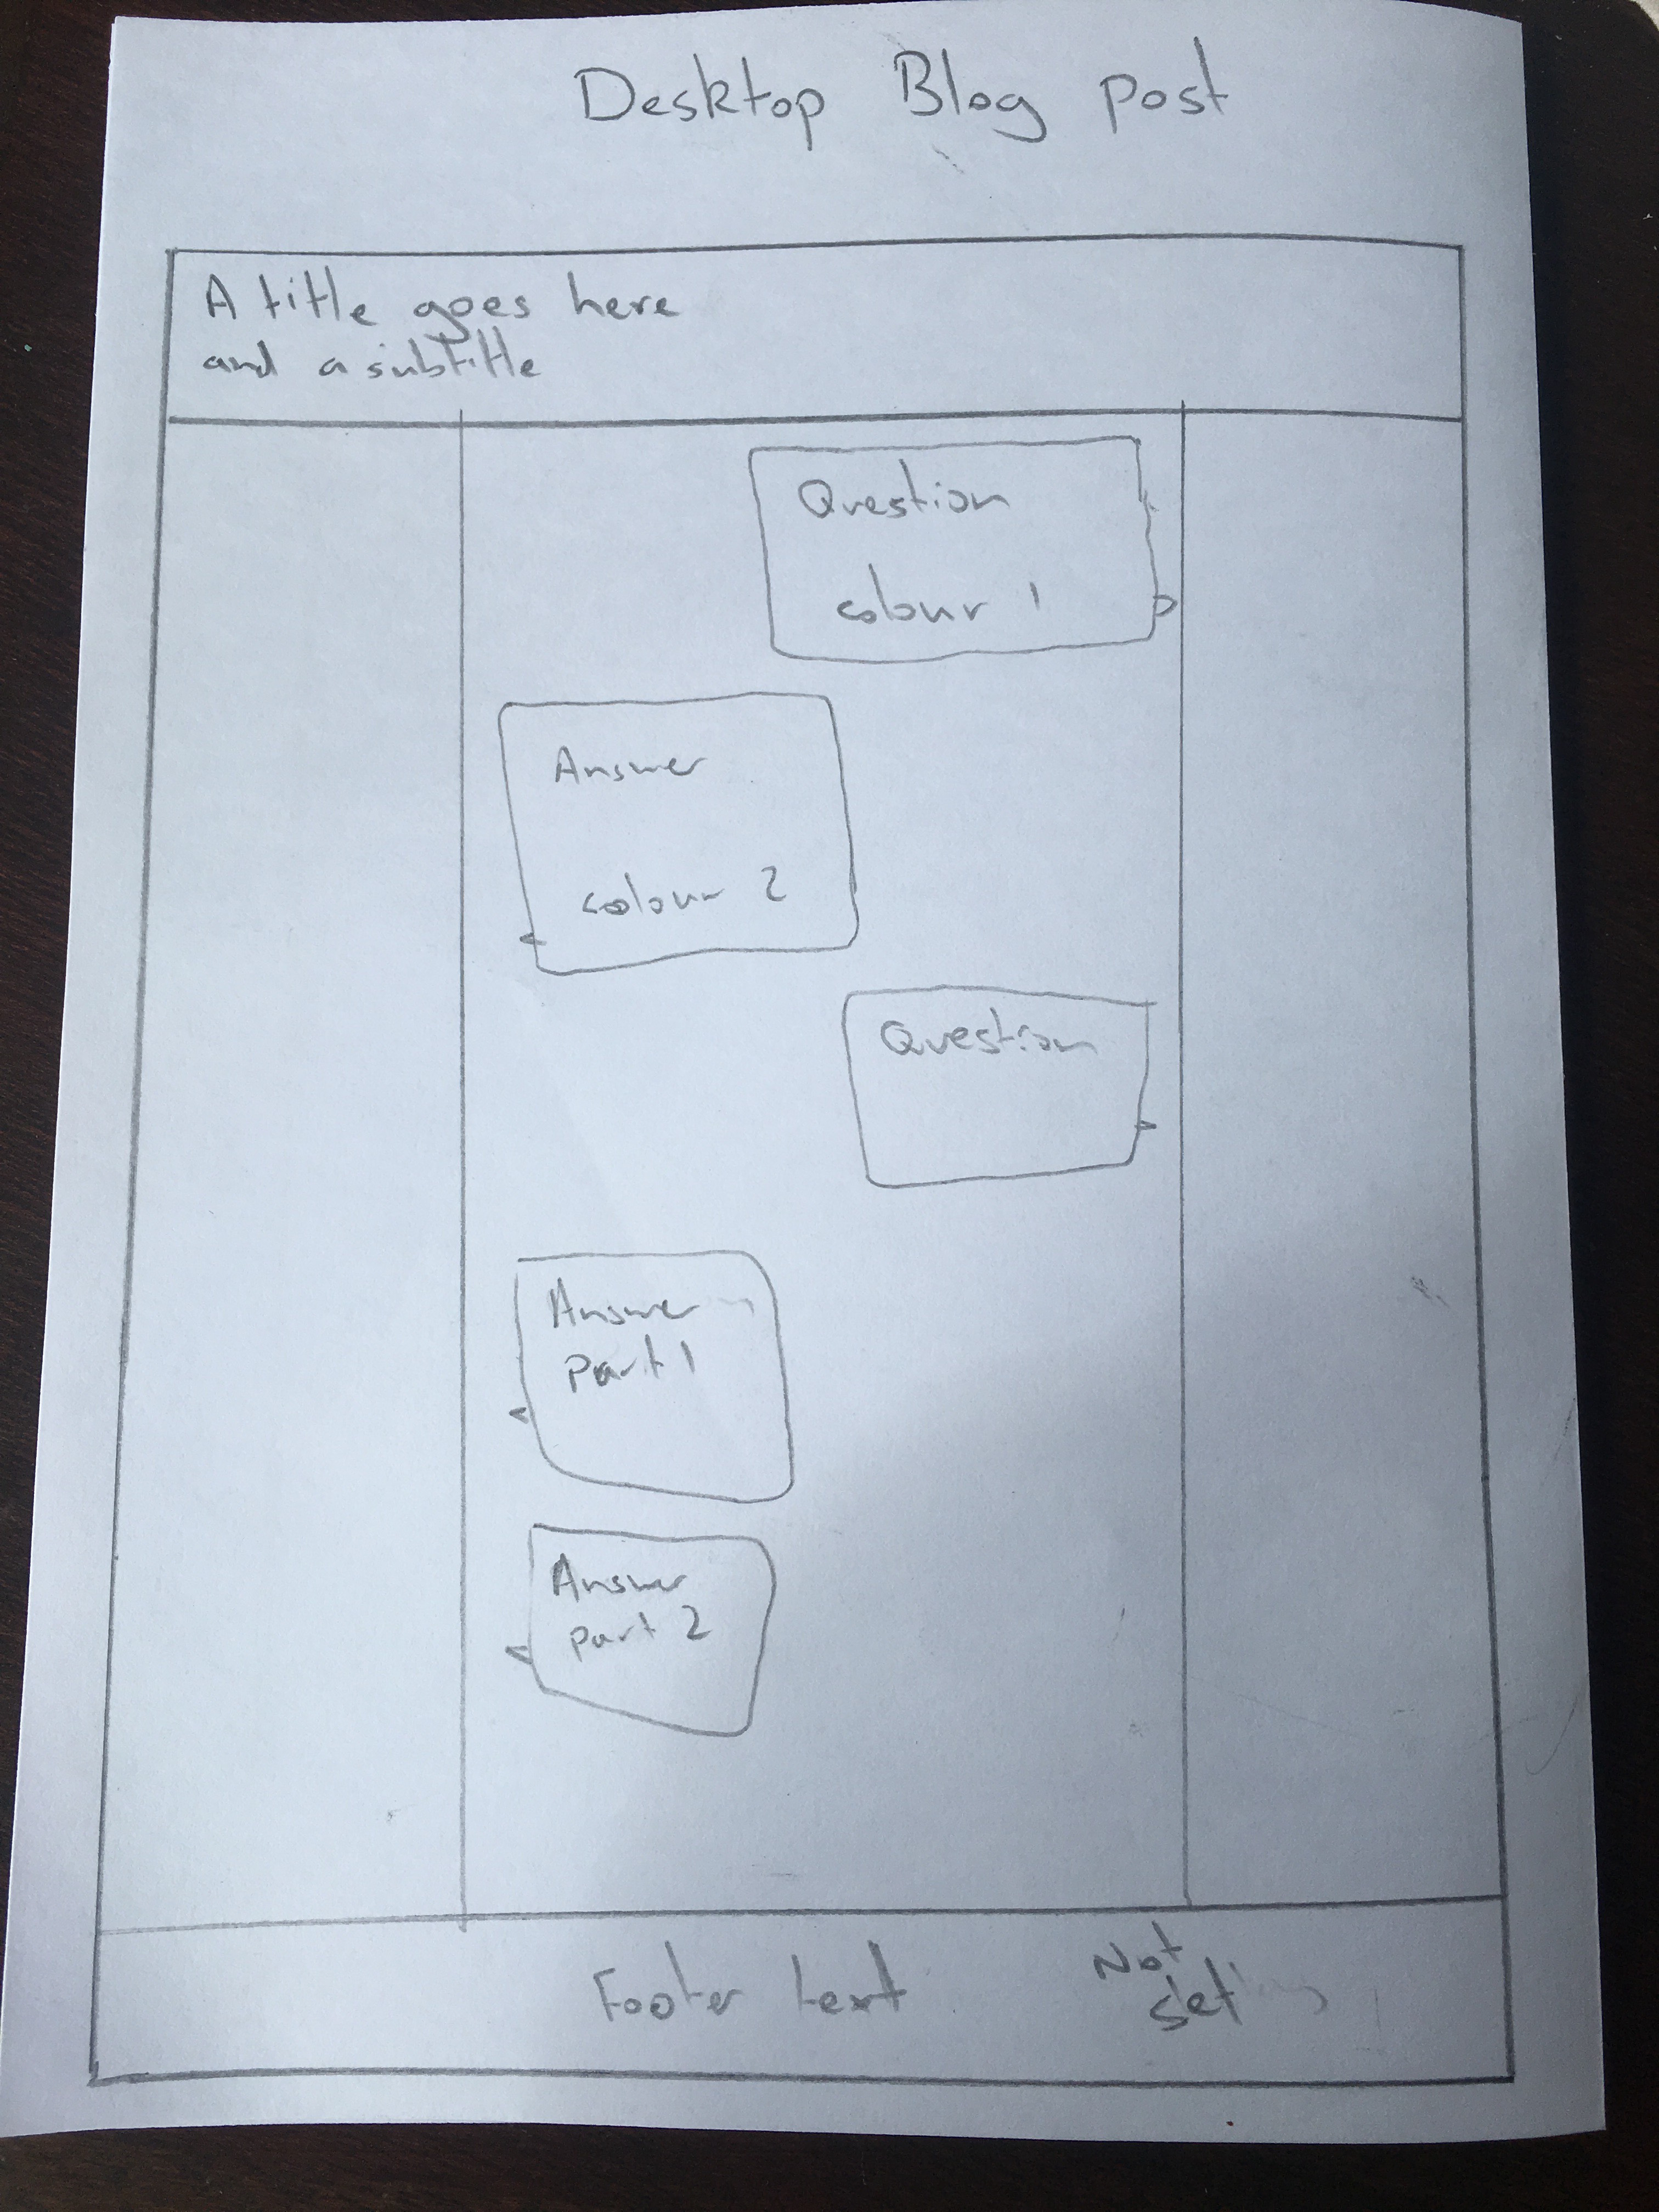 Desktop Blog post
A title goes here
and a subtitle
Question
colour 1
Answer
colour 2
Question
Answer
part 1
Answer
part 2
Footer text
Not
set